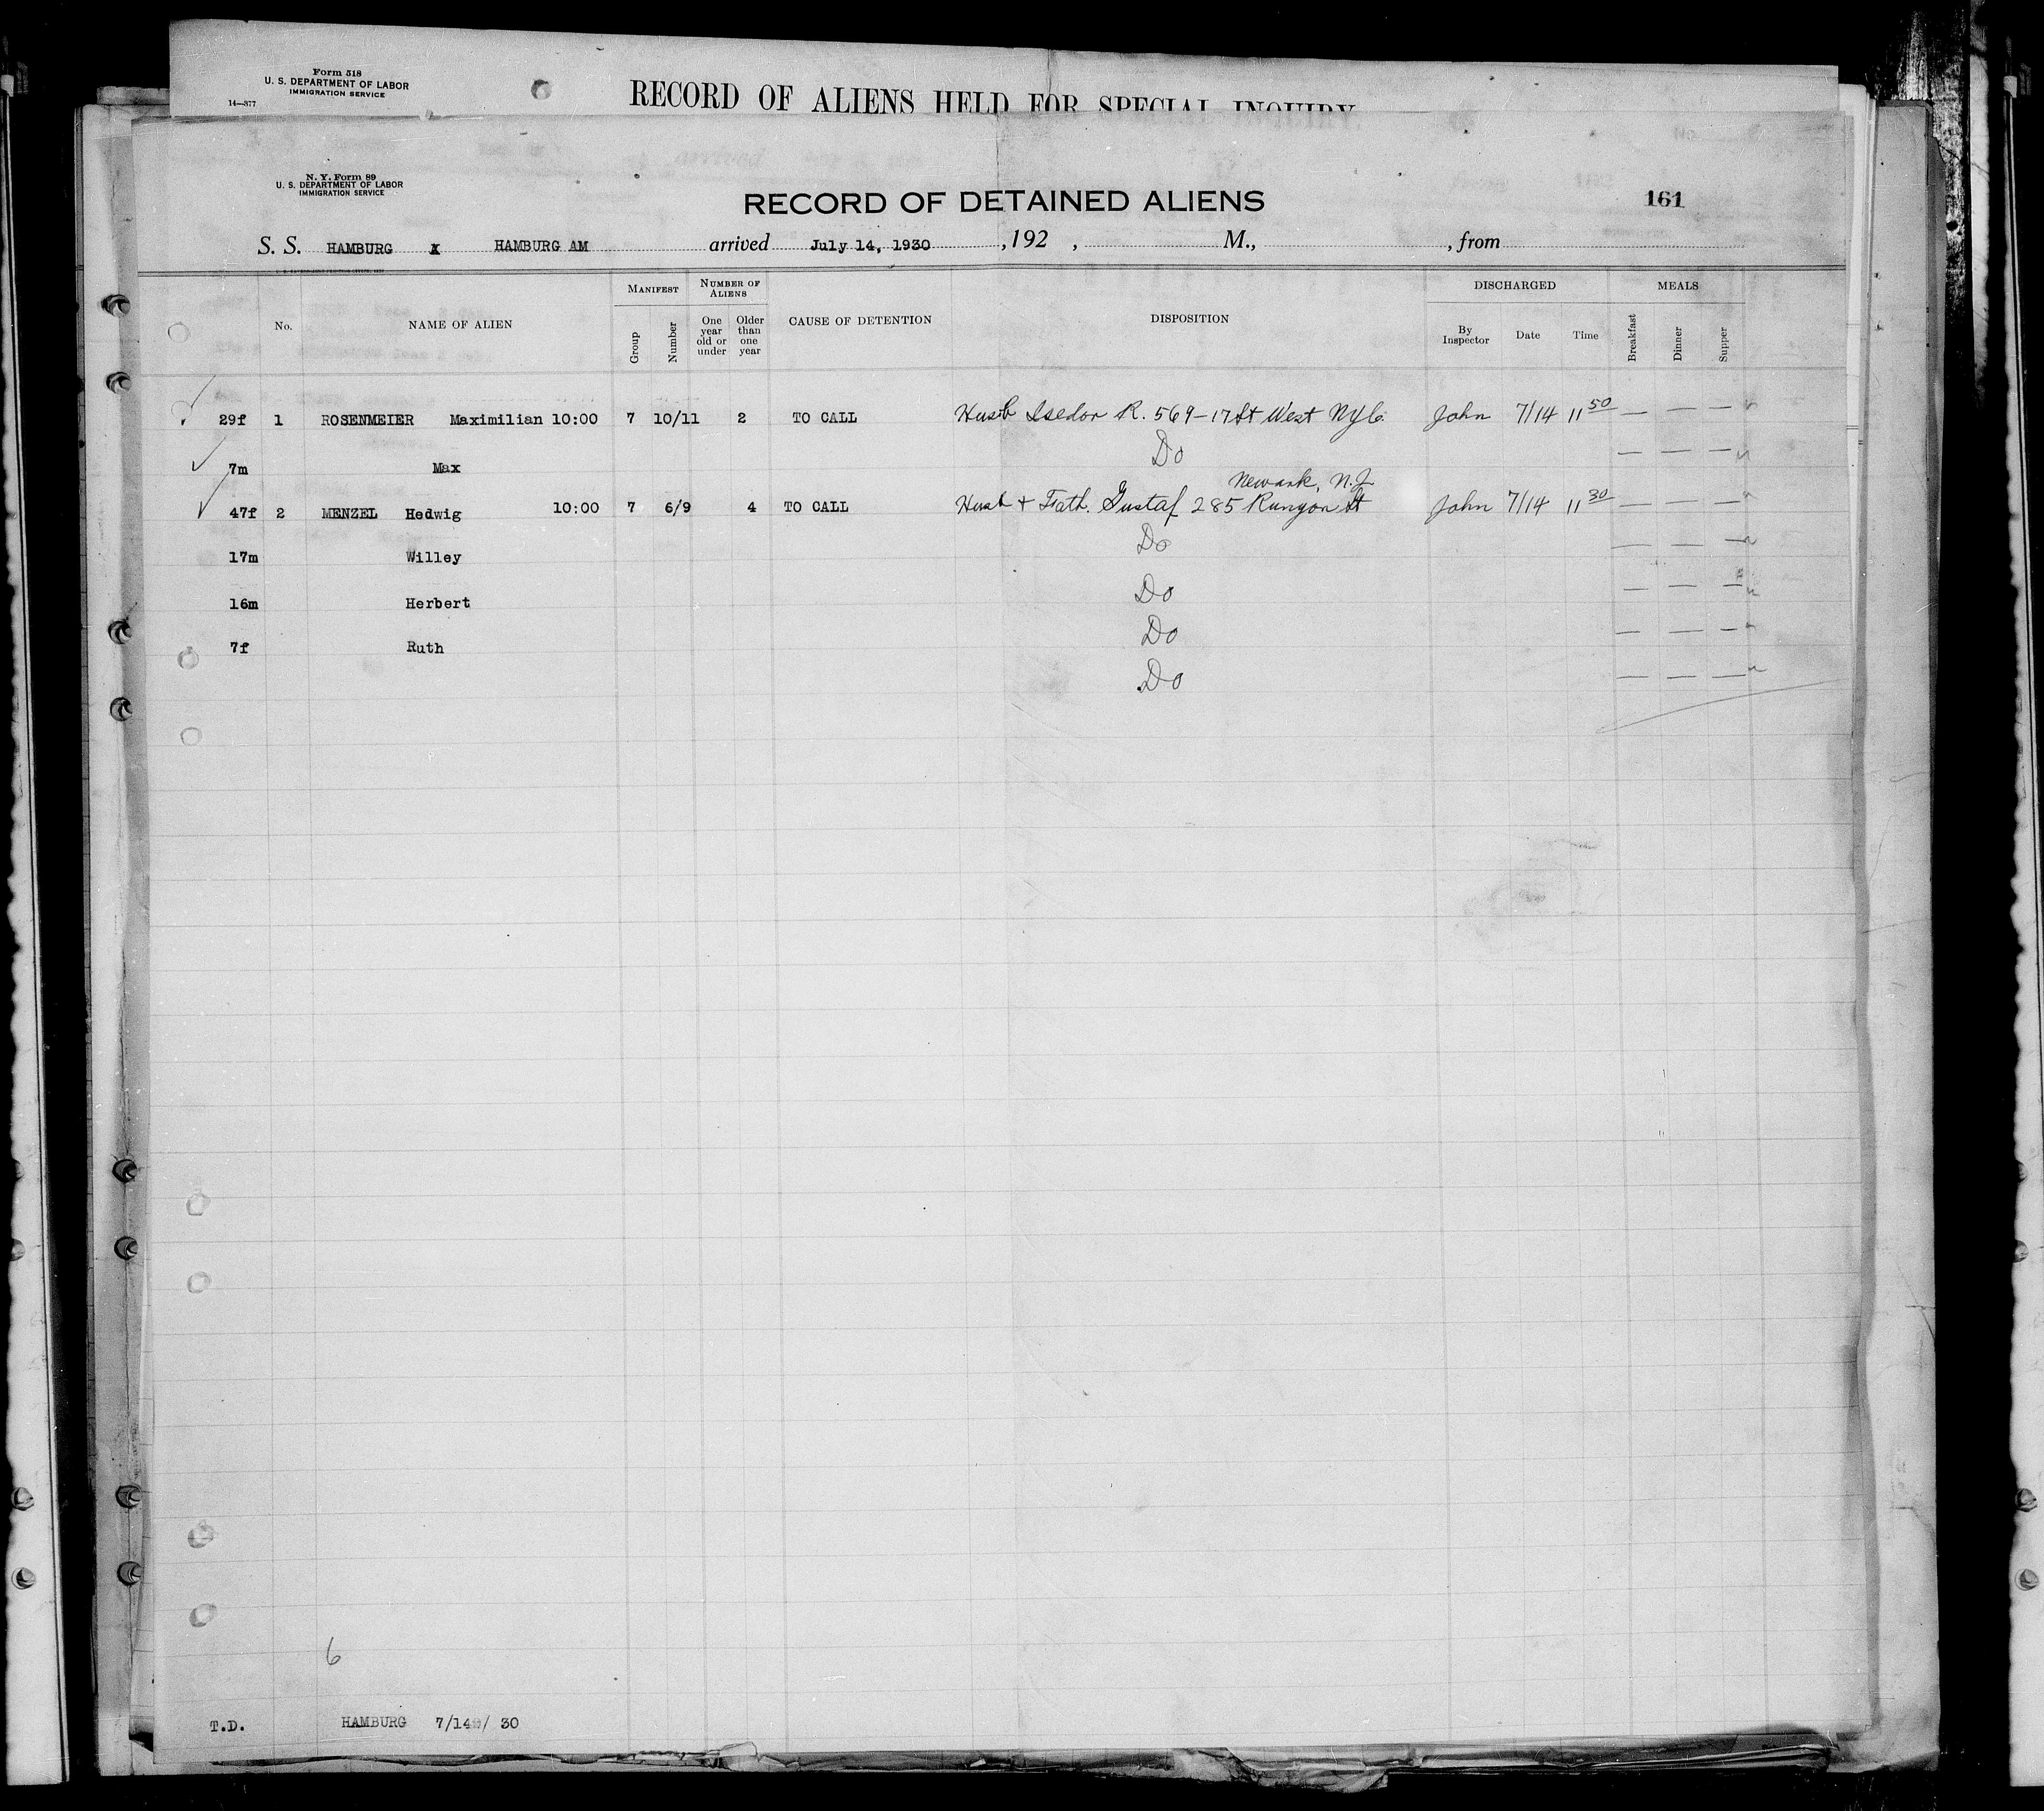 Form 518
U. S. DEPARTMENT OF LABOR
IMMIGRATION SERVICE
14—377
RECORD OF ALIENS HELD FOR SPECIAL INQUIRY
N. Y. Form 89
U. S. DEPARTMENT OF LABOR
IMMIGRATION SERVICE
RECORD OF DETAINED ALIENS
161
S. S. HAMBURG X HAMBURG AM arrived July 14, 1930 , 192 , M., , from
No. NAME OF ALIEN MANIFEST NUMBER OF ALIENS CAUSE OF DETENTION DISPOSITION DISCHARGED MEALS
Group Number One year old or under Older than one year By Inspector Date Time Breakfast Dinner Supper
29f 1 ROSENMEIER Maximilian 10:00 7 10/11 2 TO CALL Husb Isedor R. 569-17 St West NYC. John 7/14 11 50 — — —
7m Max Do — — —
Newark, N.J
47f 2 MENZEL Hedwig 10:00 7 6/9 4 TO CALL Husb + Fath. Gustaf 285 Runyon St John 7/14 11 30 — — —
17m Willey Do — — —
16m Herbert Do — — —
7f Ruth Do — — —
Do — — —
6
T.D. HAMBURG 7/14/ 30